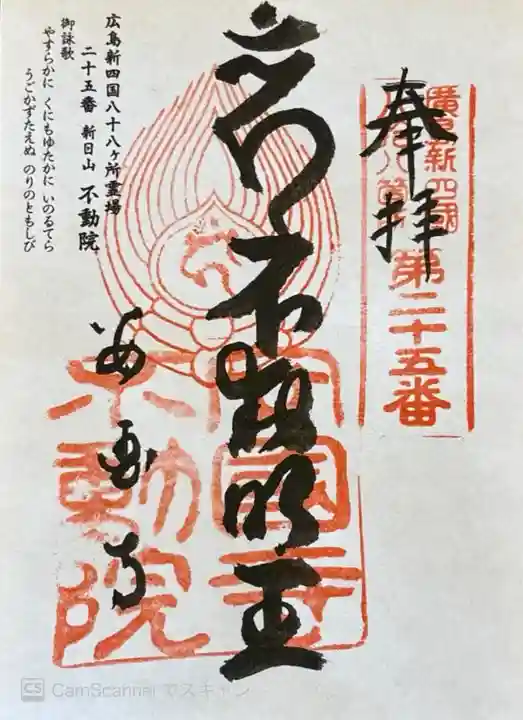 奉拝
廣島新四國
八十八箇所
第二十五番
不動明王
安國寺
不動院
広島新四国八十八ヶ所霊場
二十五番 新日山 不動院
御詠歌
やすらかに くにもゆたかに いのるてら
うごかずたえぬ のりのともしび
CS CamScanner でスキャン